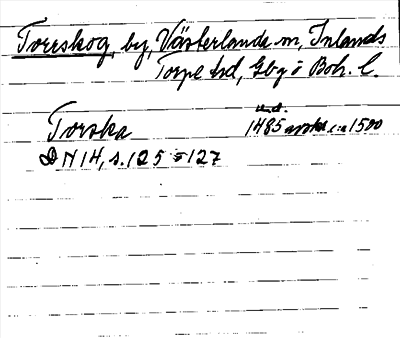 Torrskog, by, Västerlanda sn, Inlands
Torpe hd, Gbg o Boh. l.
Torska 1485 avskr. c:a 1500
DN 14, s. 125 - 127